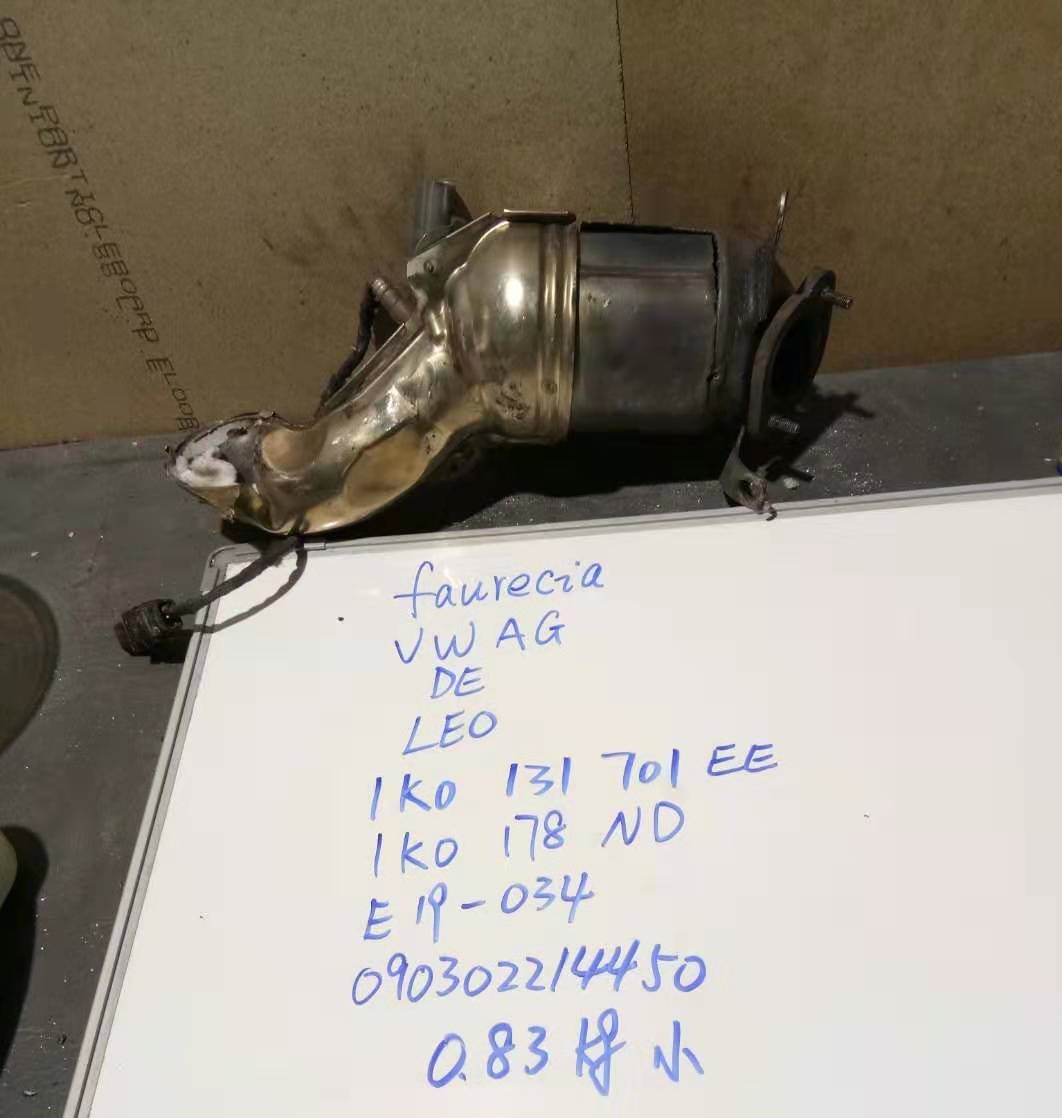 ONE PARTICLEBOARD
faurecia
VW AG
DE
LEO
1K0 131 701 EE
1K0 178 ND
E 19-034
090302214450
0.83 kg 小